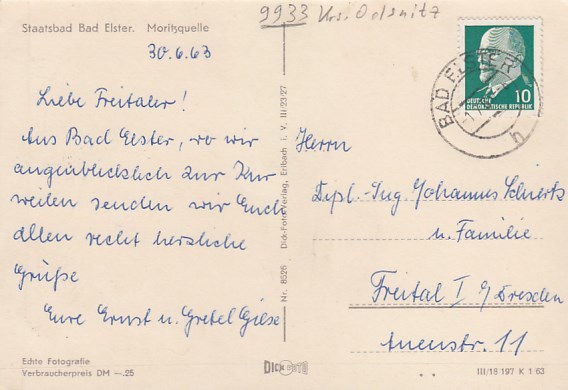 9933 Krs. Oelsnitz
Staatsbad Bad Elster. Moritzquelle
30.6.63
Liebe Freitaler!
Aus Bad Elster, wo wir
augenblicklich zur Kur
weilen senden wir Euch
allen recht herzliche
Grüße
Eure Ernst u. Gretel Giese
Echte Fotografie
Verbraucherpreis DM —.25
Nr. 8526 Dick-Foto-Verlag, Erlbach i. V. III/23/27
BAD ELSTER
h
10
DEUTSCHE
DEMOKRATISCHE REPUBLIK
Herrn
Dipl.-Ing Johannes
u. Familie
Freital I b/Dresden
Auenstr. 11
DICK FOTO
III/18 197 K 1 63